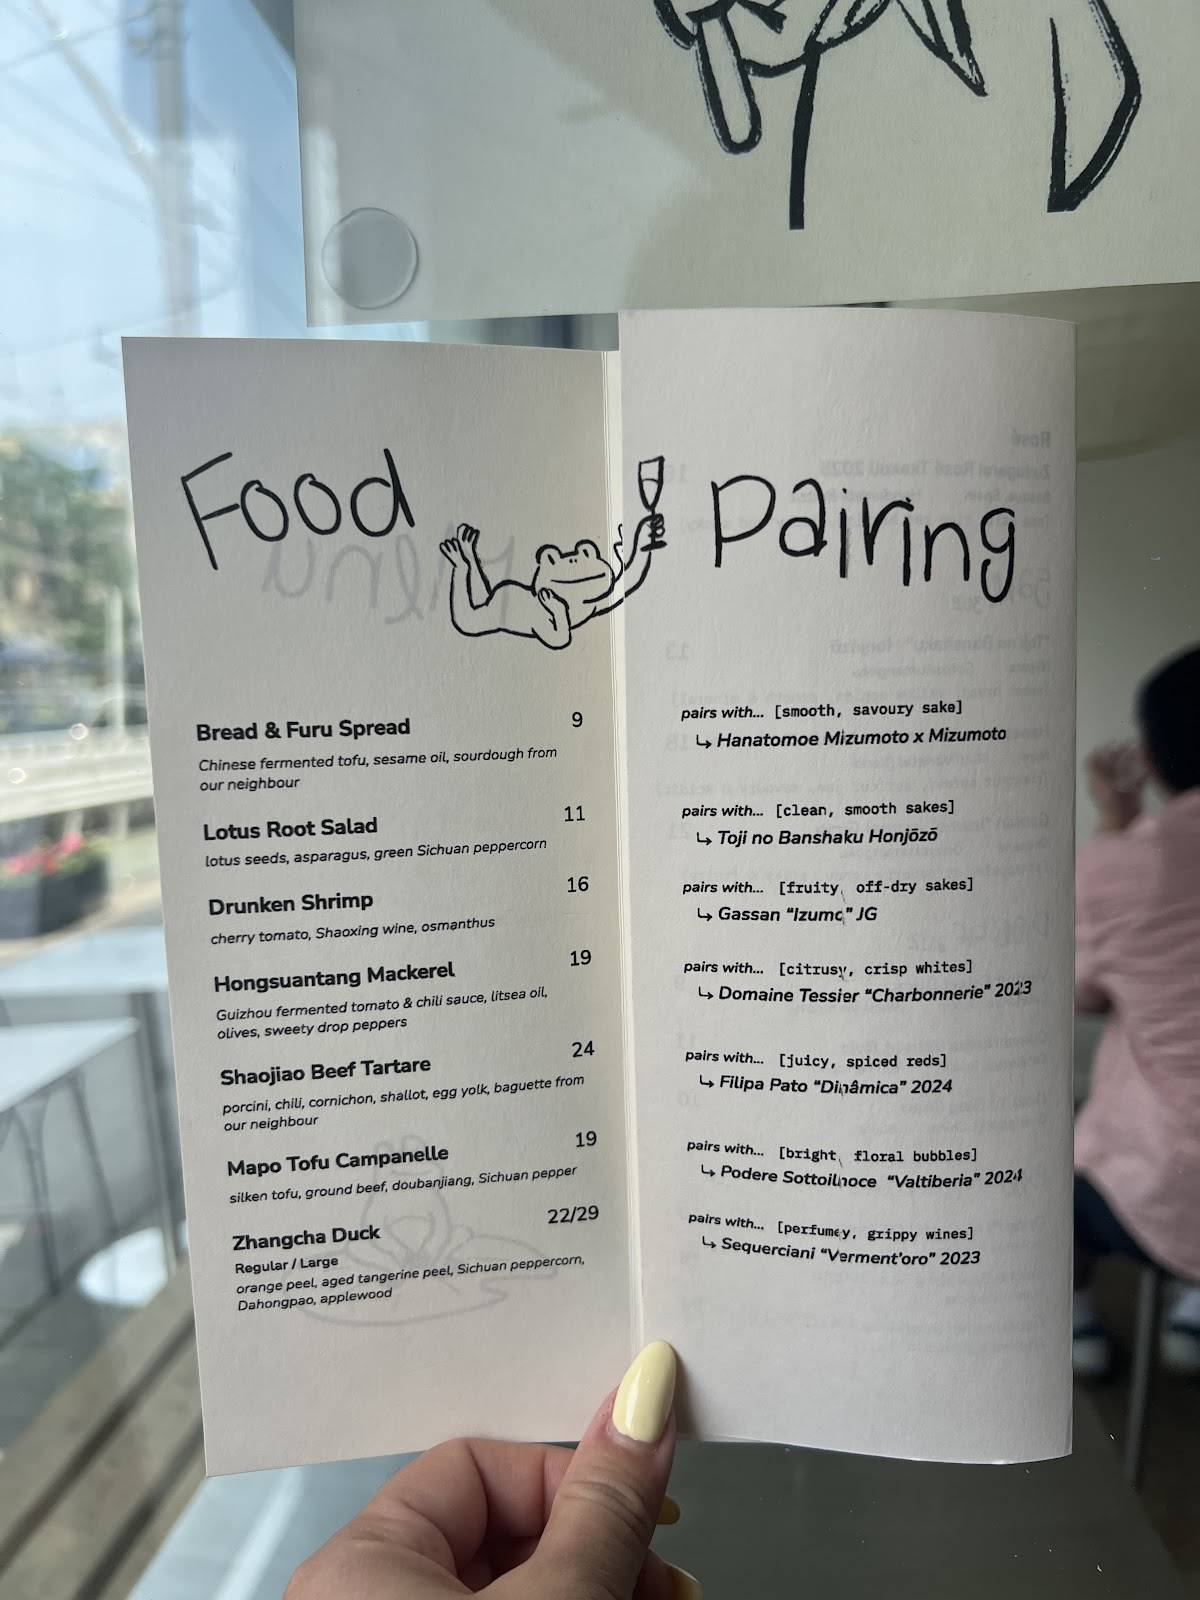 Food
Bread & Furu Spread 9
Chinese fermented tofu, sesame oil, sourdough from
our neighbour
Lotus Root Salad 11
lotus seeds, asparagus, green Sichuan peppercorn
Drunken Shrimp 16
cherry tomato, Shaoxing wine, osmanthus
Hongsuantang Mackerel 19
Guizhou fermented tomato & chili sauce, litsea oil,
olives, sweety drop peppers
Shaojiao Beef Tartare 24
porcini, chili, cornichon, shallot, egg yolk, baguette from
our neighbour
Mapo Tofu Campanelle 19
silken tofu, ground beef, doubanjiang, Sichuan pepper
Zhangcha Duck 22/29
Regular / Large
orange peel, aged tangerine peel, Sichuan peppercorn,
Dahongpao, applewood
Pairing
pairs with... [smooth, savoury sake]
↳ Hanatomoe Mizumoto x Mizumoto
pairs with... [clean, smooth sakes]
↳ Toji no Banshaku Honjōzō
pairs with... [fruity, off-dry sakes]
↳ Gassan "Izumo" JG
pairs with... [citrusy, crisp whites]
↳ Domaine Tessier "Charbonnerie" 2023
pairs with... [juicy, spiced reds]
↳ Filipa Pato "Dinâmica" 2024
pairs with... [bright, floral bubbles]
↳ Podere Sottoilnoce "Valtiberia" 2024
pairs with... [perfumey, grippy wines]
↳ Sequerciani "Verment'oro" 2023